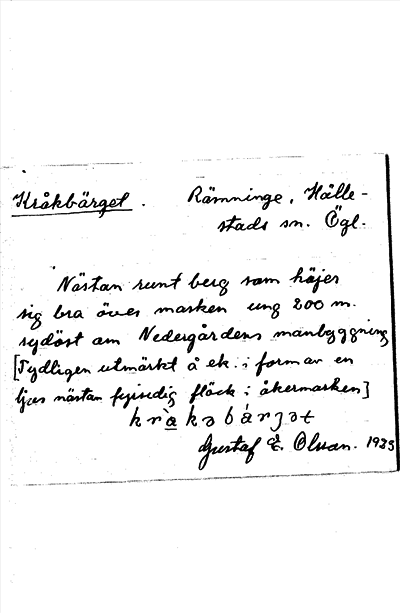 Kråkbärget. Rämninge, Hälle-
stads sn. Ögl.
Nästan runt berg som höjer
sig bra över marken ung 200 m.
sydöst om Nedergårdens manbyggning
[Tydligen utmärkt å ek. i form av en
ljus nästan fyrsidig fläck i åkermarken]
kràkəbárjət
Gustaf E. Olsson. 1935